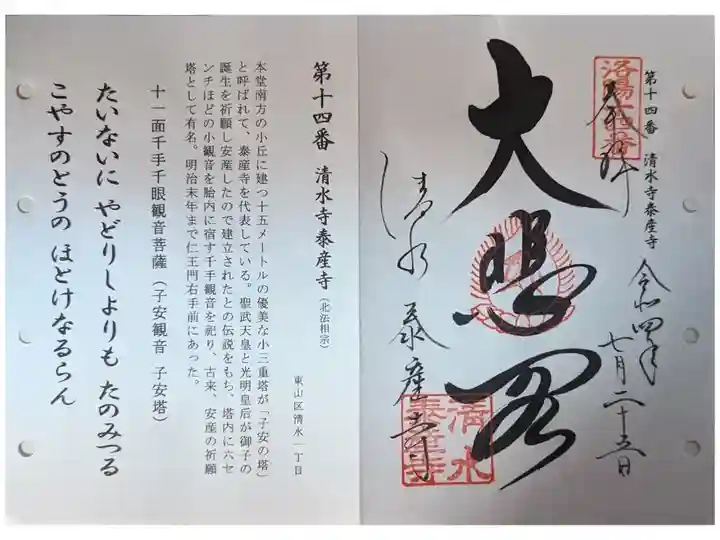 洛陽十四番
奉拝
第十四番　清水寺泰産寺
令和四年
七月二十五日
大悲閣
清水
泰産寺
清水
泰産寺
第十四番　清水寺泰産寺（北法相宗）
東山区清水一丁目
本堂南方の小丘に建つ十五メートルの優美な小三重塔が「子安の塔」
と呼ばれて、泰産寺を代表している。聖武天皇と光明皇后が御子の
誕生を祈願し安産したので建立されたとの伝説をもち、塔内に六セ
ンチほどの小観音を胎内に宿す千手観音を祀り、古来、安産の祈願
塔として有名。明治末年まで仁王門右手前にあった。
十一面千手千眼観音菩薩（子安観音　子安塔）
たいないに　やどりしよりも　たのみつる
こやすのとうの　ほとけなるらん